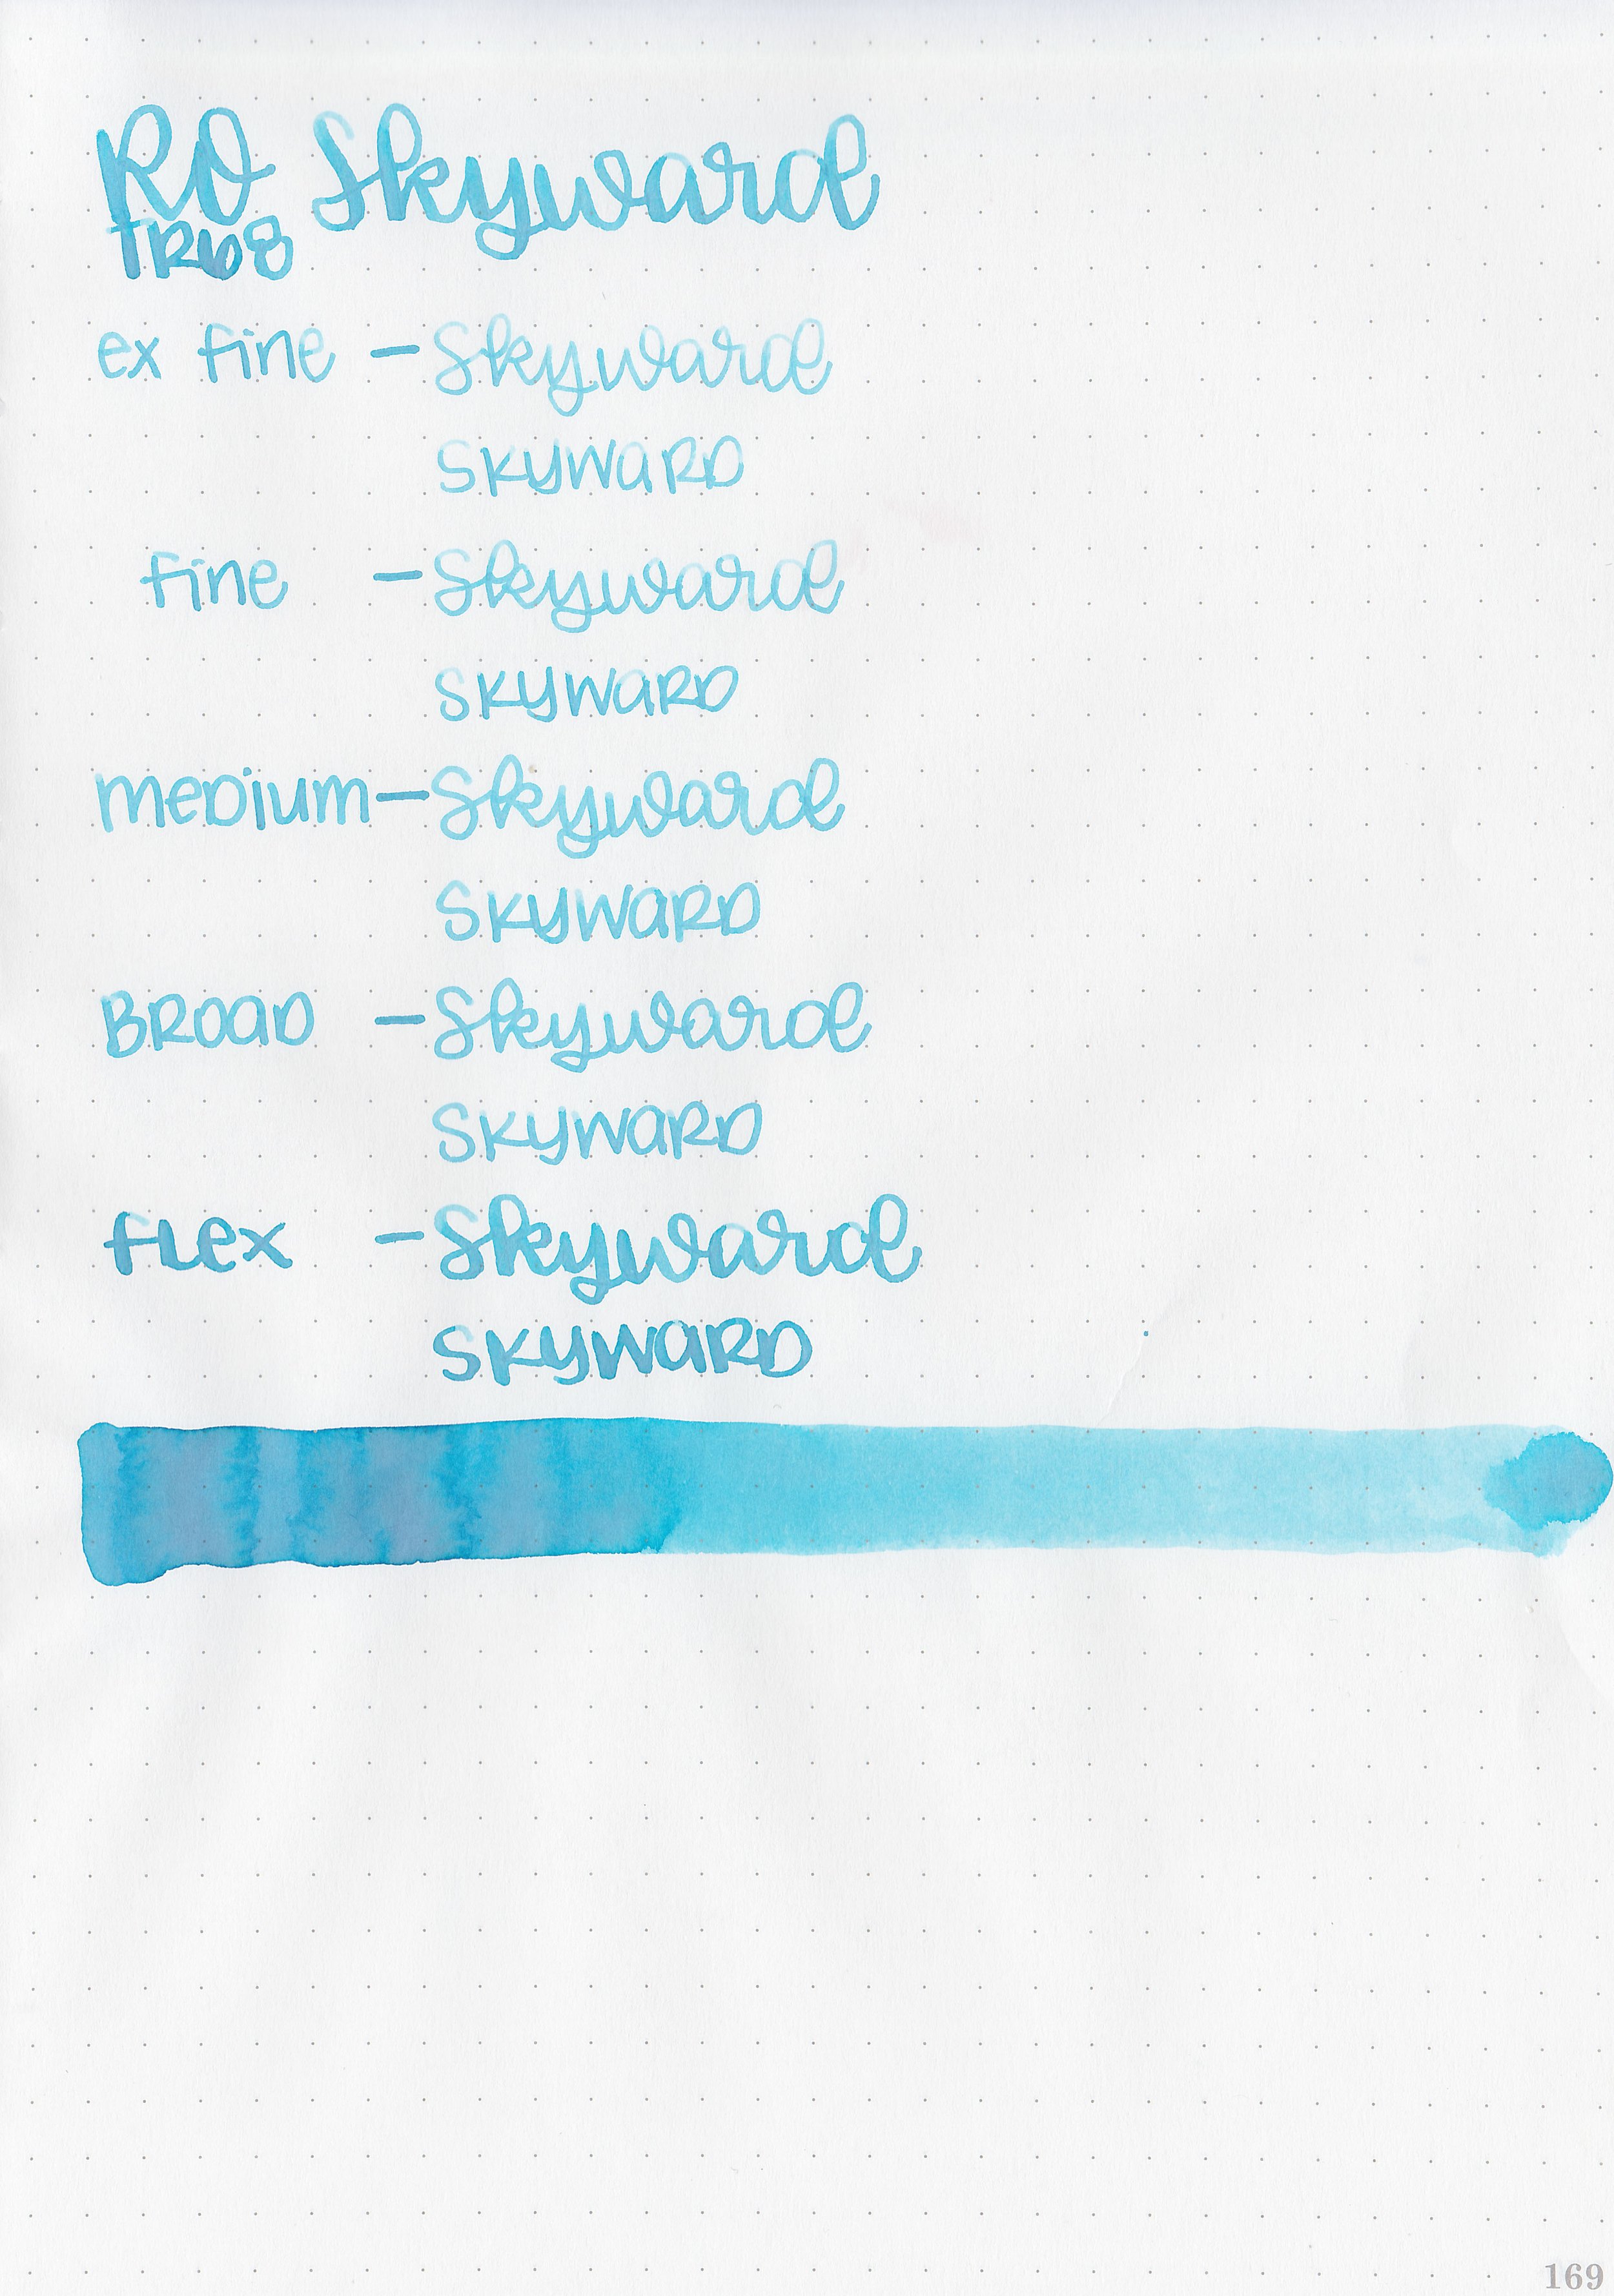 RO Skyward
TR68
ex fine - Skyward
SKYWARD
fine - Skyward
SKYWARD
meDium - Skyward
SKYWARD
BROAD - Skyward
SKYWARD
fLex - Skyward
SKYWARD
169